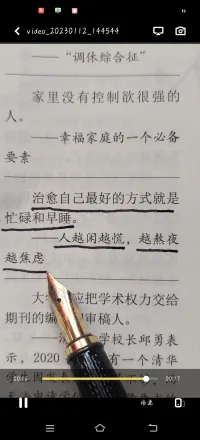 video_20230112_144544
——“调休综合征”
家里没有控制欲很强的
人。
——幸福家庭的一个必备
要素
治愈自己最好的方式就是
忙碌和早睡。
——人越闲越慌，越熬夜
越焦虑
大学
应把学术权力交给
期刊的编
审稿人。
学校长邱勇表
示，2020
有一个清华
学生因
00:17
倍速